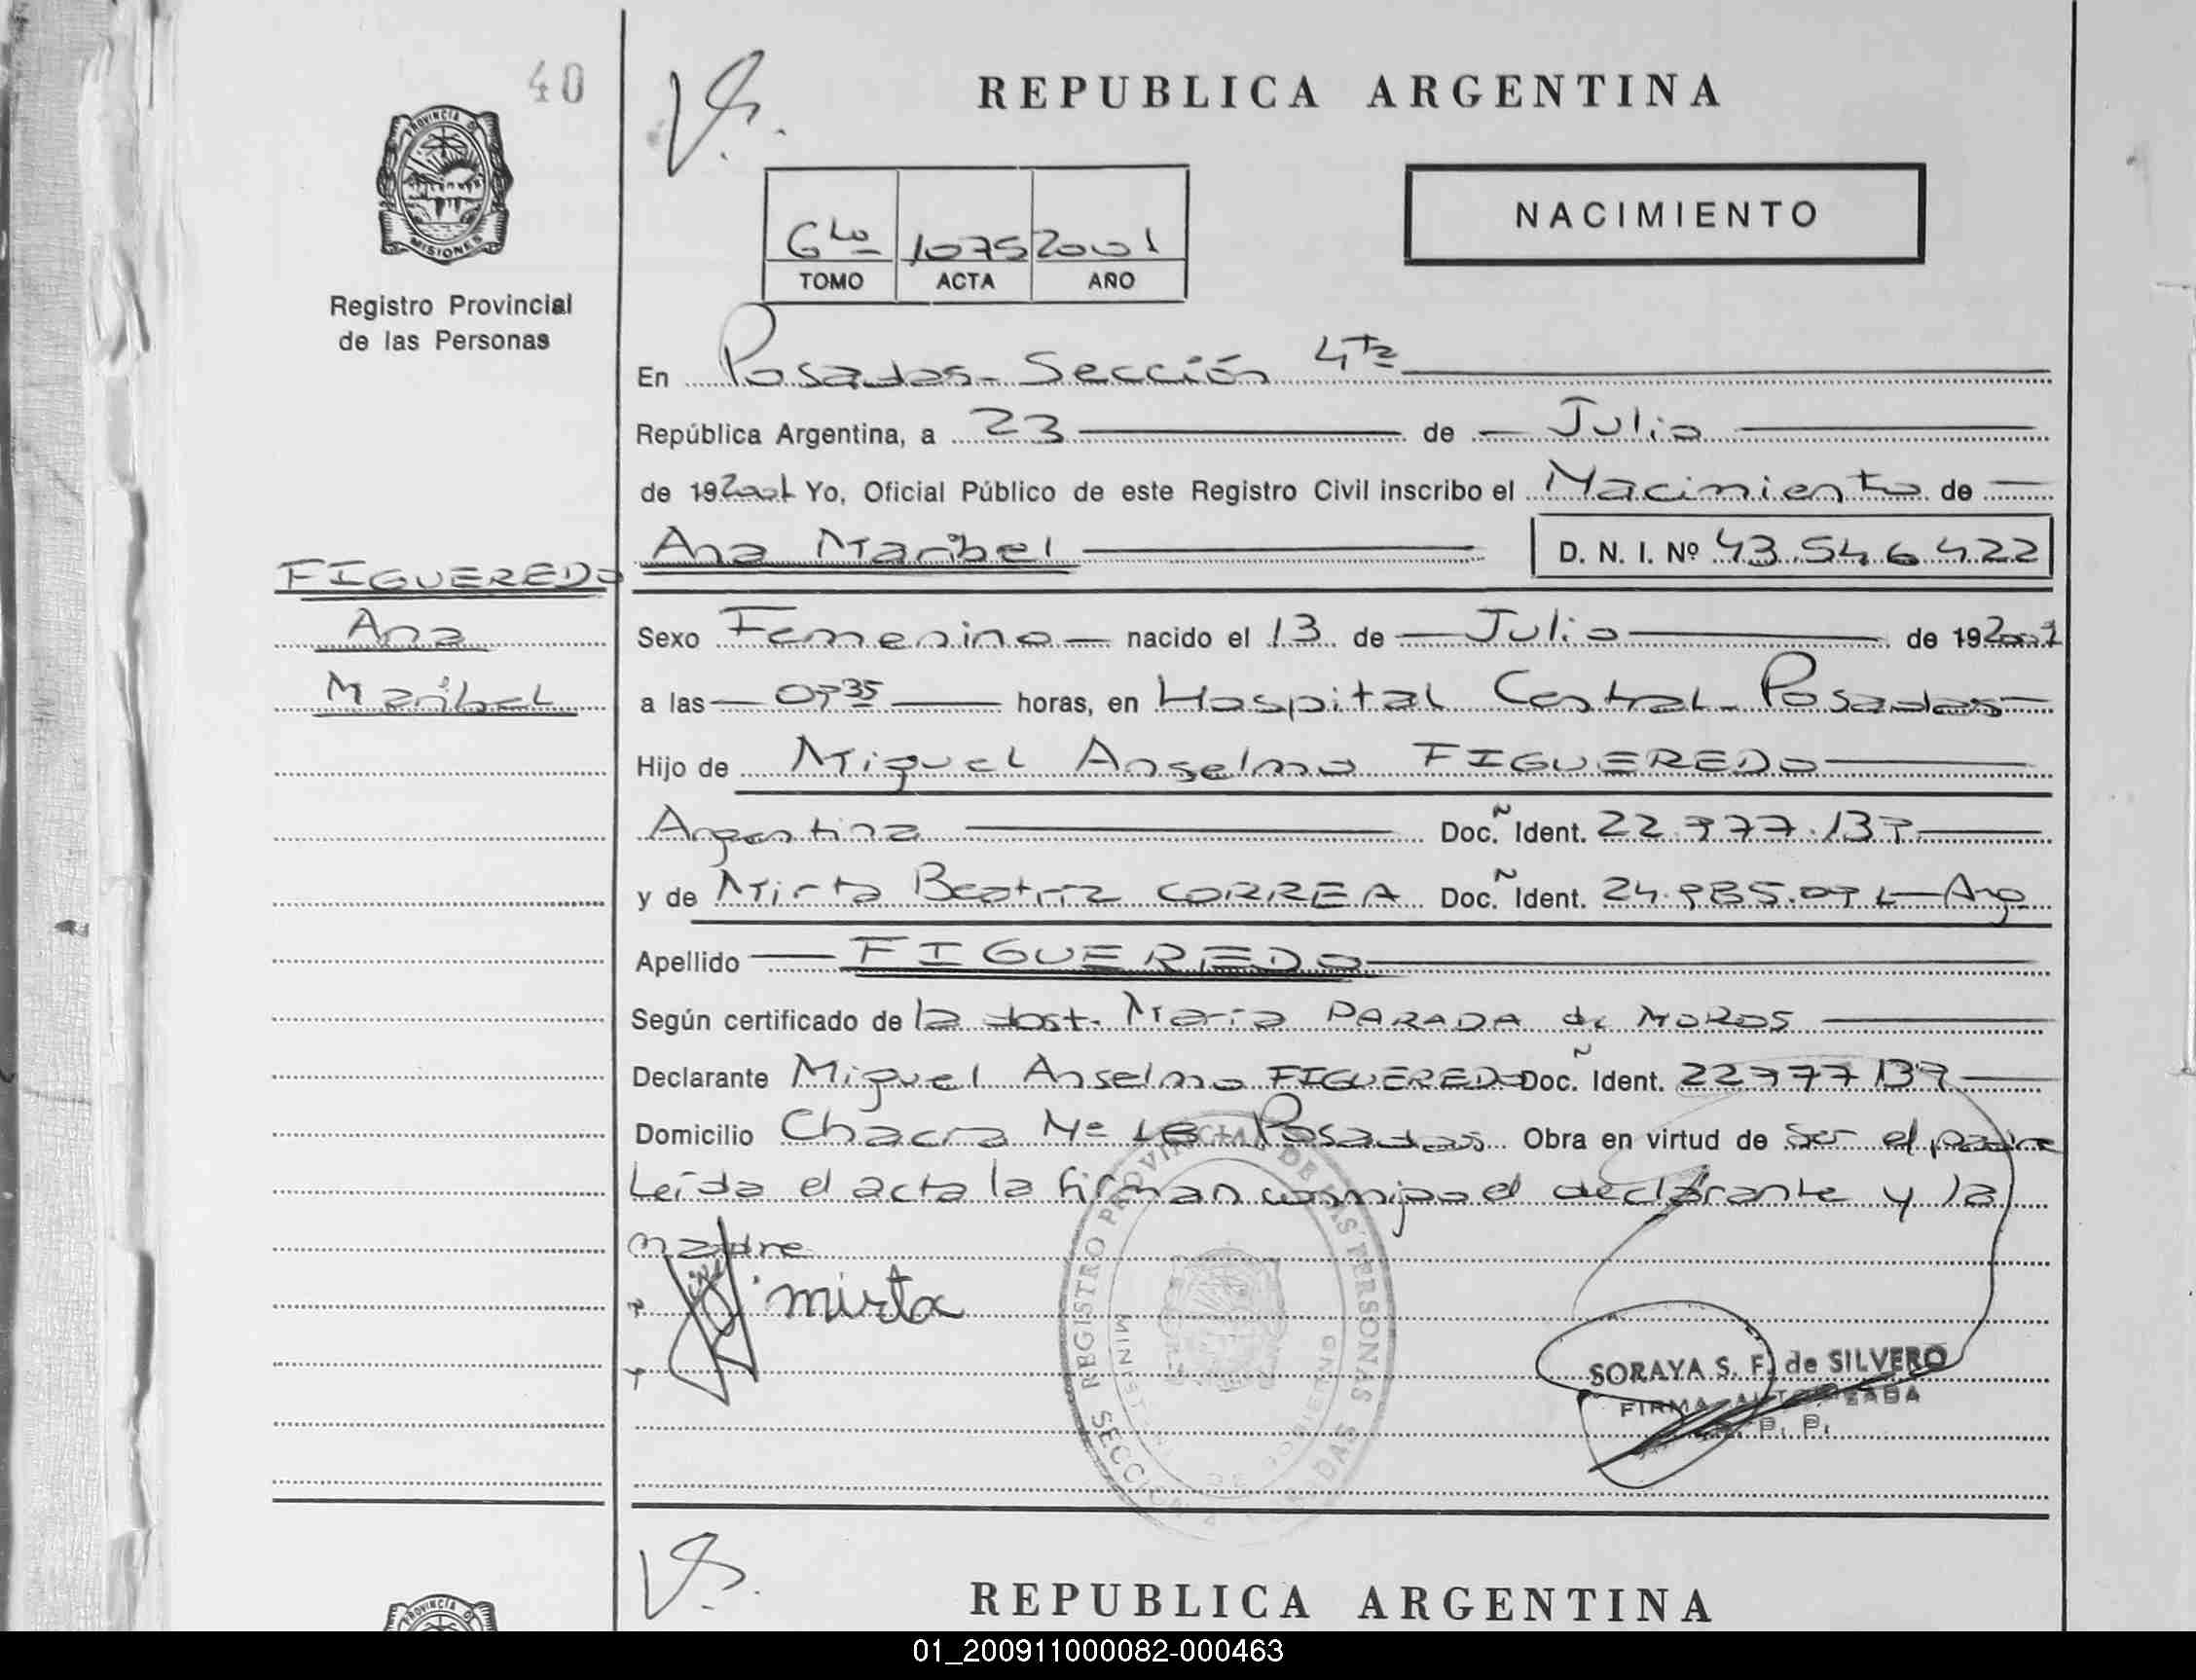 40
PROVINCIA D
MISIONES
Registro Provincial
de las Personas
REPUBLICA ARGENTINA
NACIMIENTO
6to 1075 2001
TOMO ACTA AÑO
En Posadas - Sección 4ta
República Argentina, a 23 de Julio
de 192001 Yo, Oficial Público de este Registro Civil inscribo el Nacimiento de
Ana Maribel D. N. I. Nº 43.546.422
FIGUEREDO
Ana
Maribel
Sexo Femenino nacido el 13 de Julio de 192001
a las horas, en Hospital Central - Posadas
Hijo de Miguel Anselmo FIGUEREDO
Argentina Doc. Ident.
y de Mirta Beatriz CORREA Doc. Ident. Arg
Apellido FIGUEREDO
Según certificado de la obst. María PARADA de MOROS
Declarante Miguel Anselmo FIGUEREDO Doc. Ident.
Domicilio Chacra Nº Posadas Obra en virtud de ser el padre
Leída el acta la firman conmigo el declarante y la
madre
mirta
REGISTRO PROVINCIAL DE LAS PERSONAS
SECCION
MINISTERIO DE GOBIERNO
SORAYA S. F. de SILVERO
FIRMA AUTORIZADA
R. P. P.
REPUBLICA ARGENTINA
PROVINCIA D
01_200911000082-000463